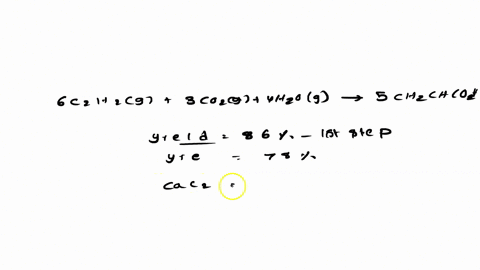 6C2H2(g) + 3CO2(g) + 4H2O(g) → 5CH2CHCO2H
yield = 86 % - 1st step
yie = 78 %
CaC2 =